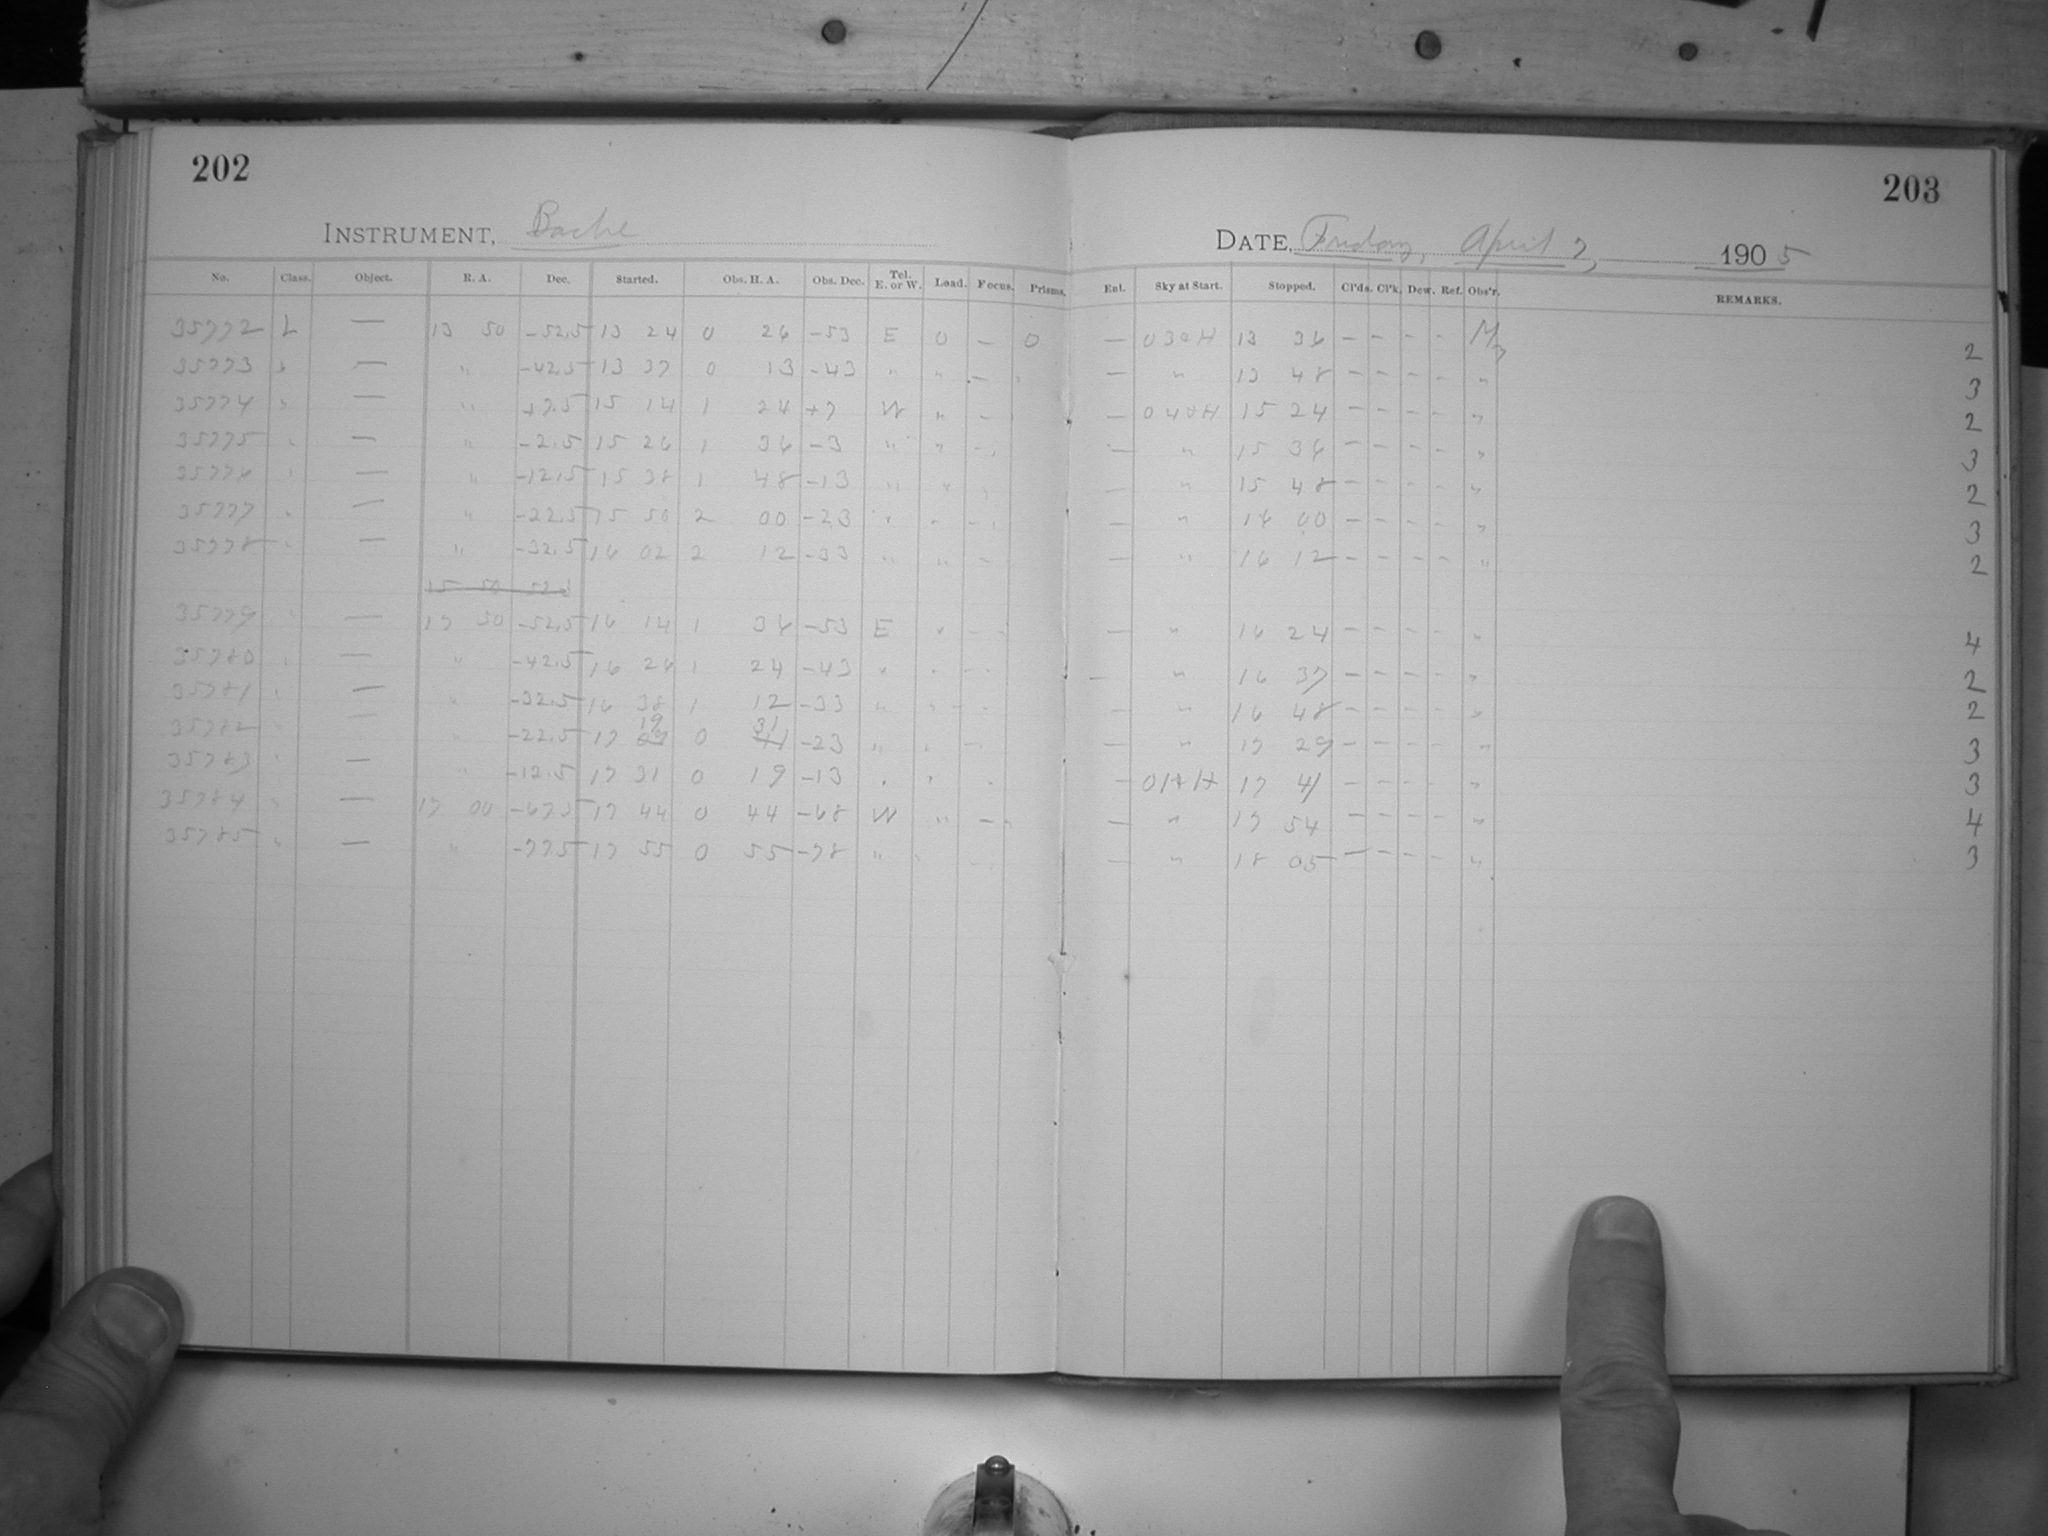 202
203
INSTRUMENT, Bache
DATE, Friday, April 7, 1905
No. Class. Object. R. A. Dec. Started. Obs. H. A. Obs. Dec. Tel. E. or W. Load. Focus. Prisms. Ent. Sky at Start. Stopped. Cl'ds. Cl'k. Dew. Ref. Obs'r. REMARKS.
35772 L — 13 50 -52.5 13 24 0 26 -53 E 0 — 0 — 030H 13 36 - - - - M 2
35773 " — " -42.5 13 37 0 13 -43 " " — " — " 13 48 - - - - " 3
35774 " — " +7.5 15 14 1 24 +7 W " — — 040H 15 24 - - - - " 2
35775 " — " -2.5 15 26 1 36 -3 " " — — " 15 36 - - - - " 3
35776 " — " -12.5 15 38 1 48 -13 " " — — " 15 48 - - - - " 2
35777 " — " -22.5 15 50 2 00 -23 " " — — " 16 00 - - - - " 3
35778 " — " -32.5 16 02 2 12 -33 " " — — " 16 12 - - - - " 2
15 50 52.5
35779 " — 17 50 -52.5 16 14 1 36 -53 E " — — " 16 24 - - - - " 4
35780 " — " -42.5 16 26 1 24 -43 " " — — " 16 37 - - - - " 2
35781 " — " -32.5 16 38 1 12 -33 " " — — " 16 48 - - - - " 2
35782 " — " -22.5 17 19 0 31 -23 " " — — " 17 29 - - - - " 3
35783 " — " -12.5 17 31 0 19 -13 " " — — 17 41 - - - - " 3
35784 " — 17 00 -67.5 17 44 0 44 -68 W " — — " 17 54 - - - - " 4
35785 " — " -77.5 17 55 0 55 -78 " " — — " 18 05 - - - - " 3